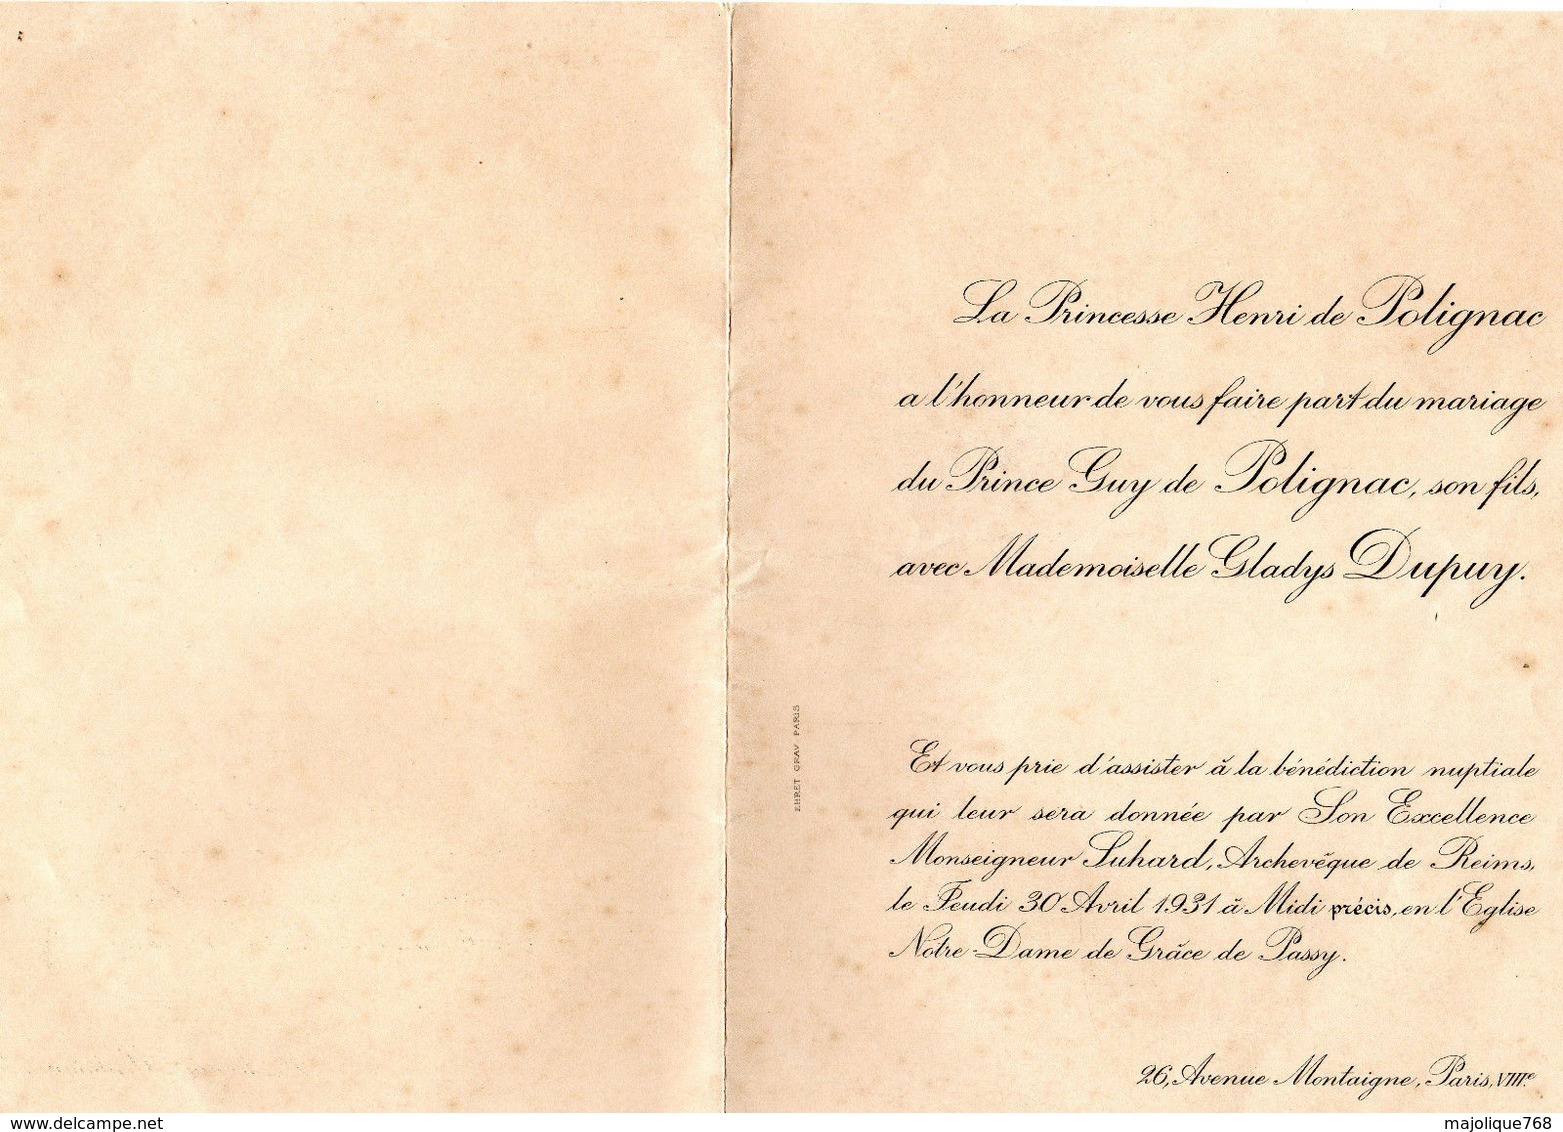 La Princesse Henri de Polignac
a l'honneur de vous faire part du mariage
du Prince Guy de Polignac, son fils,
avec Mademoiselle Gladys Dupuy.
Et vous prie d'assister à la bénédiction nuptiale
qui leur sera donnée par Son Excellence
Monseigneur Suhard, Archevêque de Reims,
le Jeudi 30 Avril 1931 à Midi précis, en l'Eglise
Notre-Dame de Grâce de Passy.
26, Avenue Montaigne, Paris, VIIIe
EHRET GRAV PARIS
www.delcampe.net
majolique768